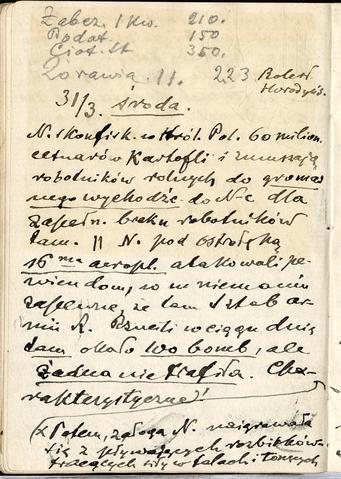 Zabez. 1 Kw. 210.
Podat. 150
Ciot. St 350.
Żorawia. 11. 223 Robert
31/3. środa.
N. skonfisk. w Król. Pol. 60 milion.
cetnarów kartofli i zmuszają
robotników rolnych do groma
nego wychodźc. do N-c dla
zapełn. braku robotników
tam. || N. pod Ostrołęką
16ma aeropl. atakowali pe-
wien dom, co w mniemaniu
zapewne, że tam Sztab ar-
mii R. Rzucili w ciągu dnia
tam około 100 bomb, ale
żadna nie trafiła. Cha-
rakterystyczne!
(x Potem, załoga N. naigrawała
się z pływających rozbitków
tracących siły w falach i tonących